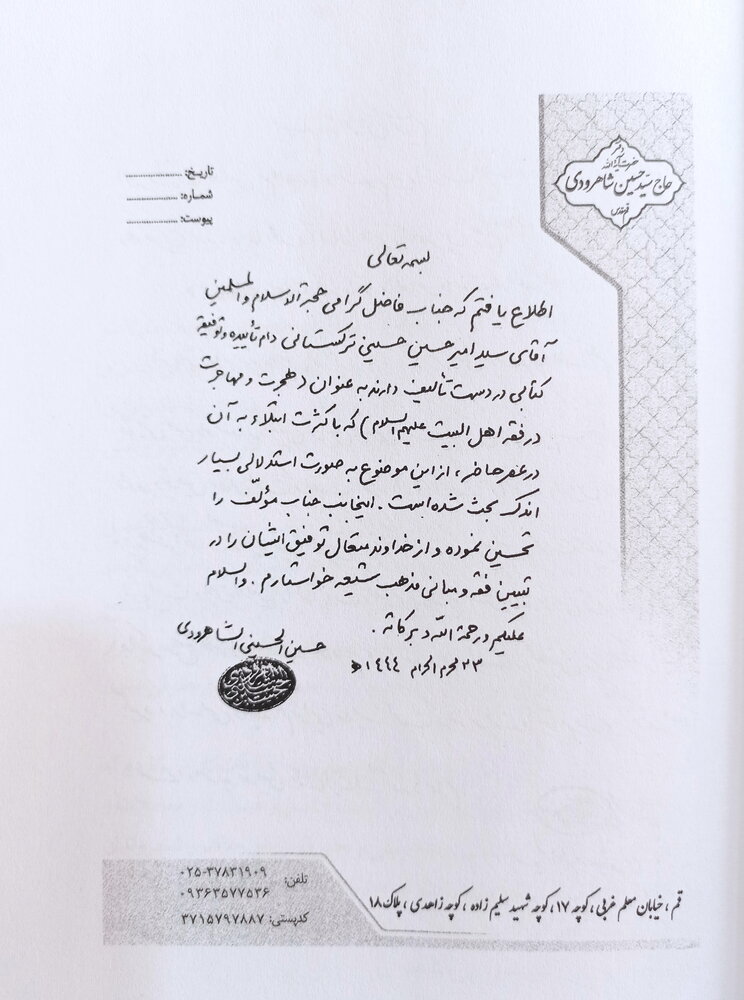 دفتر
حضرت آیة الله
حاج سید حسین شاهرودی
قم مقدس
تاریخ: ....................
شماره: ....................
پیوست: ....................
بسمه تعالی
اطلاع یافتم که جناب فاضل گرامی حجة الاسلام والمسلمین
آقای سید امیر حسین حسینی ترکستانی دام تأییده وتوفیقه
کتابی در دست تألیف دارند به عنوان (هجرت و مهاجرت
در فقه اهل البیت علیهم السلام) که با کثرت ابتلاء به آن
در عصر حاضر، از این موضوع به صورت استدلالی بسیار
اندک بحث شده است. اینجانب جناب مؤلّف را
تحسین نموده و از خداوند متعال توفیق ایشان را در
تبیین فقه و مبانی مذهب شیعه خواستارم. والسلام
علیکم ورحمة اللّه و برکاته.
حسین الحسینی الشاهرودی
۲۳ محرم الحرام ۱۴۴۴ ه
تلفن: ۰۲۵-۳۷۸۳۱۹۰۹
۰۹۳۶۳۵۷۷۵۳۶
کدپستی: ۳۷۱۵۷۹۷۸۸۷
قم، خیابان معلم غربی، کوچه ۱۷، کوچه شهید سلیم زاده، کوچه زاهدی، پلاک ۱۸